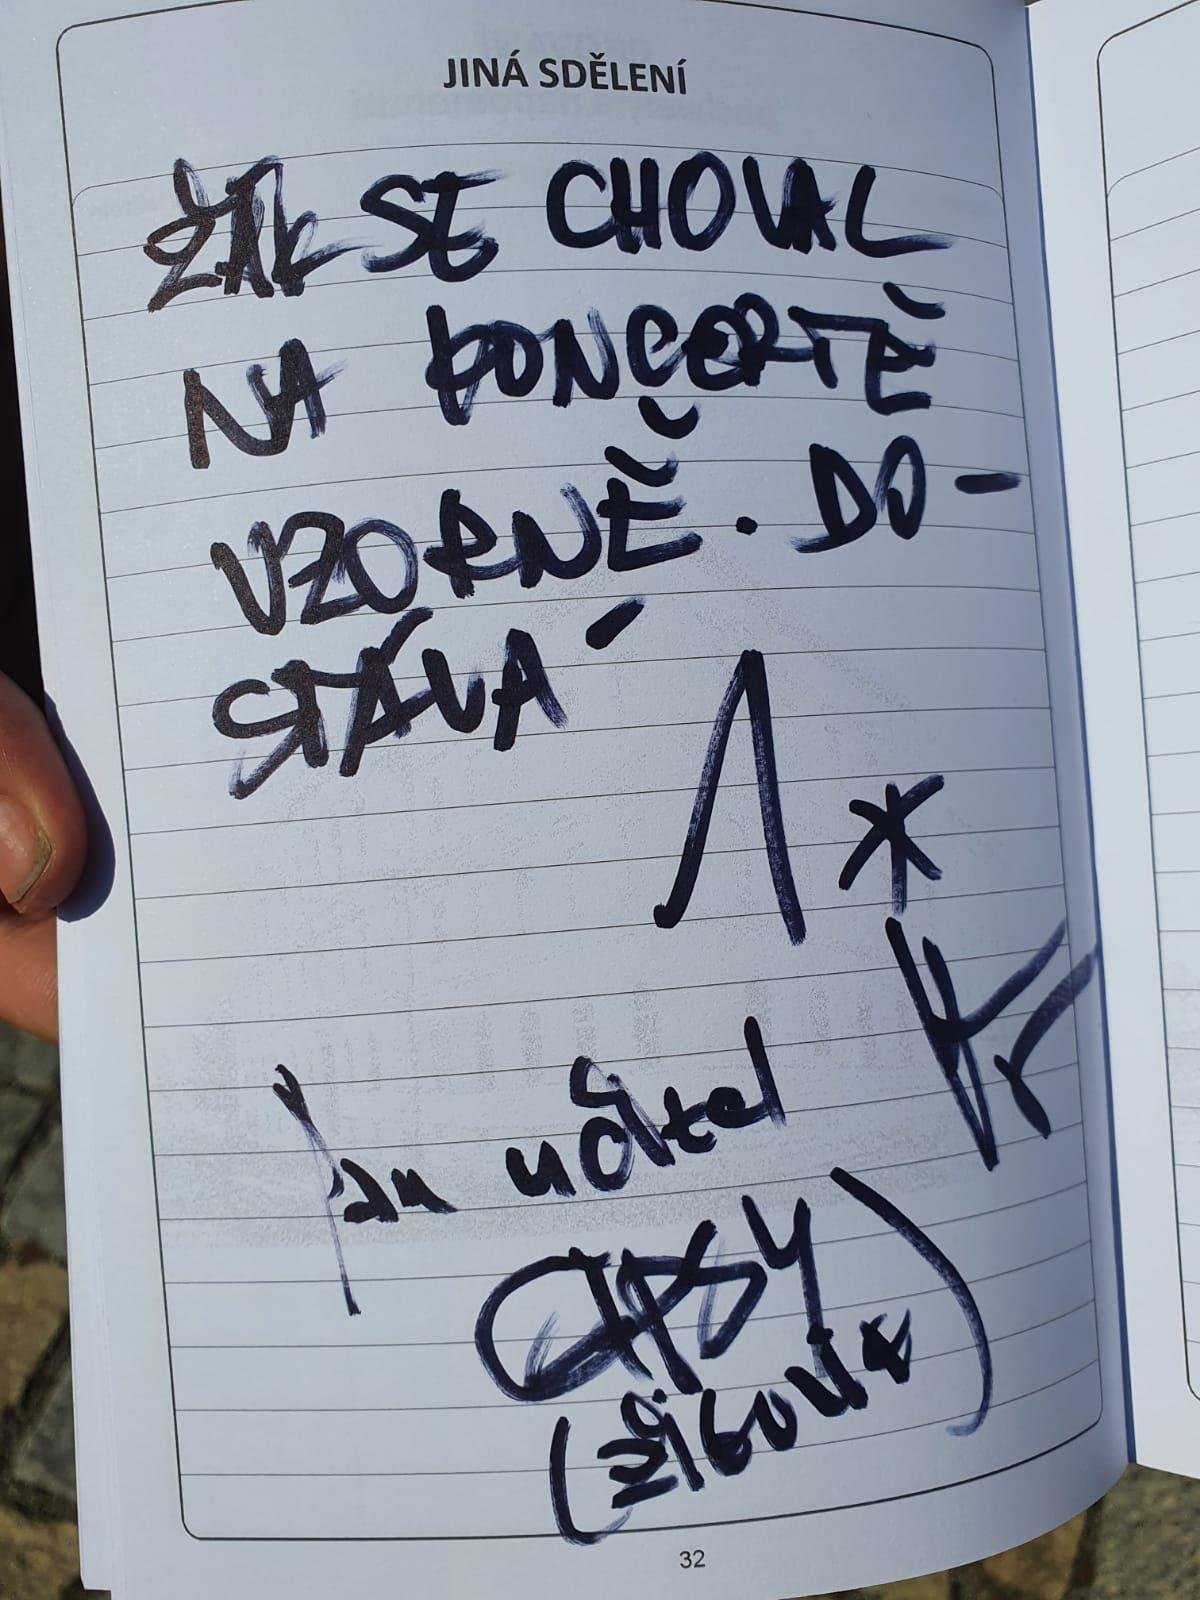 JINÁ SDĚLENÍ
ŽÁK SE CHOVAL
NA KONCERTĚ
VZORNĚ. DO-
STÁVÁ
1*
pan učitel
GIPSY
32